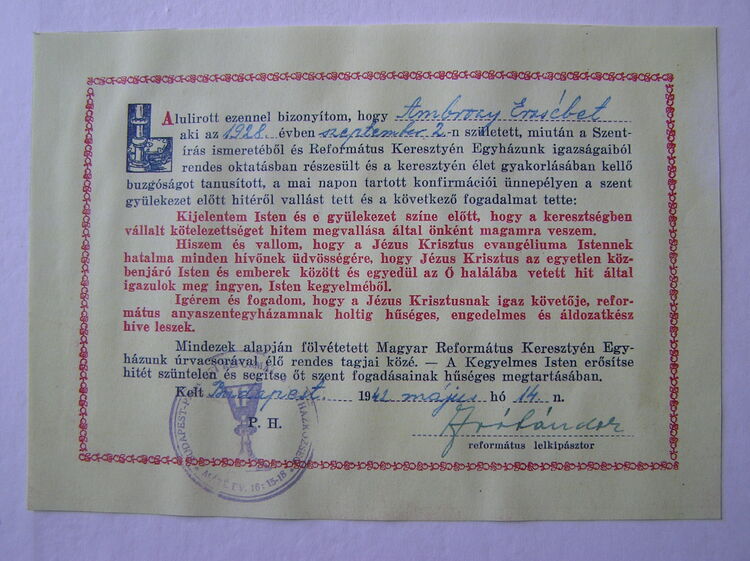 Alulirott ezennel bizonyítom, hogy Ambrozy Erzsébet
aki az 1928. évben szeptember 2-n született, miután a Szent-
írás ismeretéből és Református Keresztyén Egyházunk igazságaiból
rendes oktatásban részesült és a keresztyén élet gyakorlásában kellő
buzgóságot tanusított, a mai napon tartott konfirmációi ünnepélyen a szent
gyülekezet előtt hitéről vallást tett és a következő fogadalmat tette:
Kijelentem Isten és e gyülekezet színe előtt, hogy a keresztségben
vállalt kötelezettséget hitem megvallása által önként magamra veszem.
Hiszem és vallom, hogy a Jézus Krisztus evangéliuma Istennek
hatalma minden hívőnek üdvösségére, hogy Jézus Krisztus az egyetlen köz-
benjáró Isten és emberek között és egyedül az Ő halálába vetett hit által
igazulok meg ingyen, Isten kegyelméből.
Igérem és fogadom, hogy a Jézus Krisztusnak igaz követője, refor-
mátus anyaszentegyházamnak holtig hűséges, engedelmes és áldozatkész
híve leszek.
Mindezek alapján fölvétetett Magyar Református Keresztyén Egy-
házunk úrvacsorával élő rendes tagjai közé. — A Kegyelmes Isten erősítse
hitét szüntelen és segítse őt szent fogadásainak hűséges megtartásában.
Kelt Budapest. 1942 május hó 14. n.
P. H.
református lelkipásztor
BUDAPEST
MÁTÉ EV. 16: 15-18